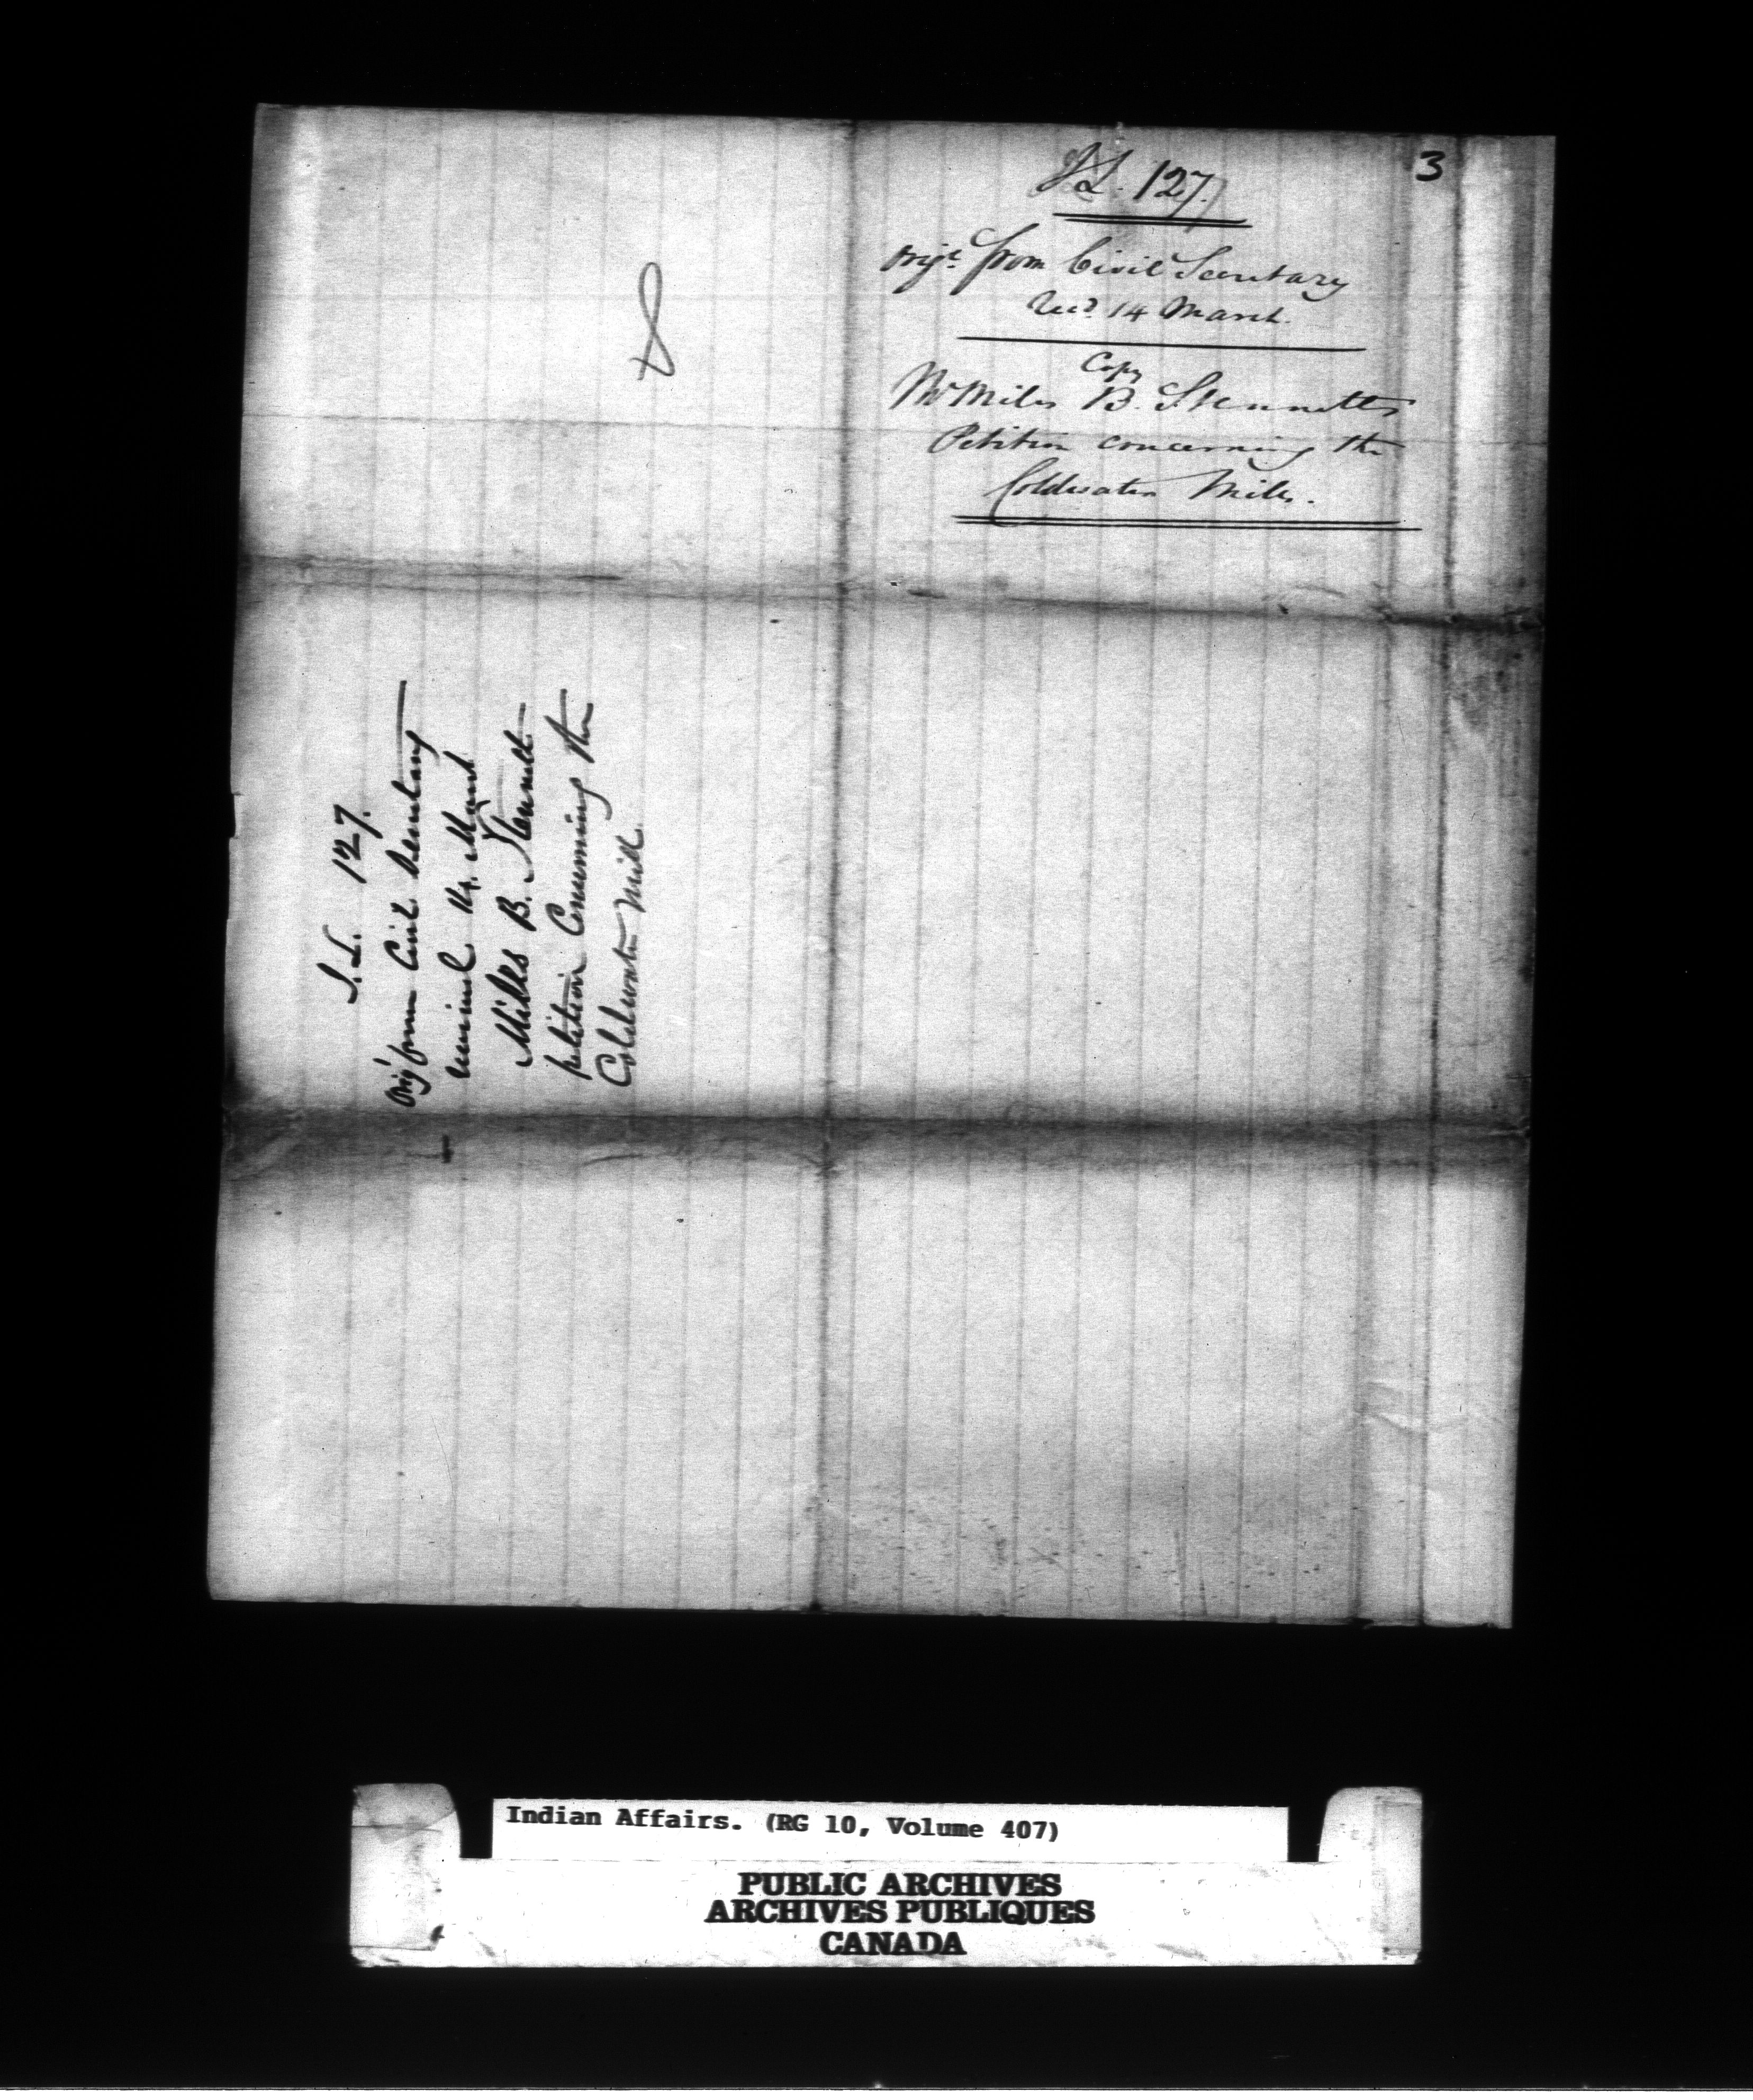 3
J.L. 127.
Orig.l from Civil Secretary
Rec.d 14 March.
Copy
Mr Miles B. Stennetts
Petition concerning the
Coldwater Mills.
J.L. 127.
Orig.l from Civil Secretary
received 14. March
Milles B. Stennett
petition Concerning the
Coldwater Mill
Indian Affairs. (RG 10, Volume 407)
PUBLIC ARCHIVES
ARCHIVES PUBLIQUES
CANADA